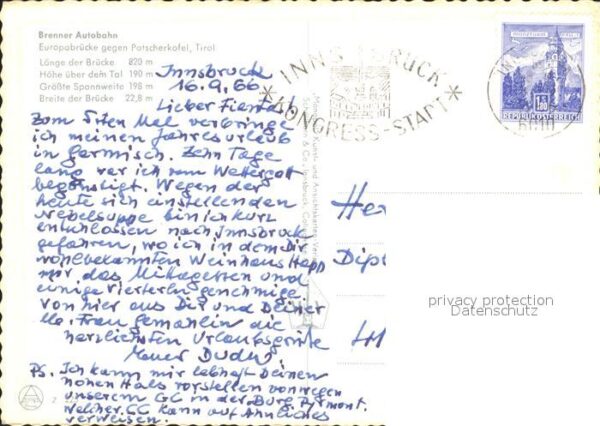 Brenner Autobahn
Europabrücke gegen Patscherkofel, Tirol
Länge der Brücke 820 m
Höhe über dem Tal 190 m
Größte Spannweite 198 m
Breite der Brücke 22,8 m
Innsbruck
16.9.66
Lieber
Zum 5ten Mal verbringe
ich meinen Jahresurlaub
in Garmisch. Zehn Tage
lang war ich vom Wettergott
begünstigt. Wegen der
heute sich einstellenden
Nebelsuppe bin ich kurz
entschlossen nach Innsbruck
gefahren, wo ich in dem Dir
wohlbekannten Weinhaus Happ
mir das Mittagessen und
einige Vierterln genehmige
Von hier aus Dir und Deiner
Frau Gemahlin die
herzlichsten Urlaubsgrüße
Ps. Ich kann mir lebhaft Deinen
hohen Hals vorstellen von wegen
unserem CC in der Burg Pyrmont.
Welcher CC kann auf Ähnliches
verweisen.
INNSBRUCK
KONGRESS-STADT
REPUBLIK ÖSTERREICH
Her
Dipl
privacy protection
Datenschutz